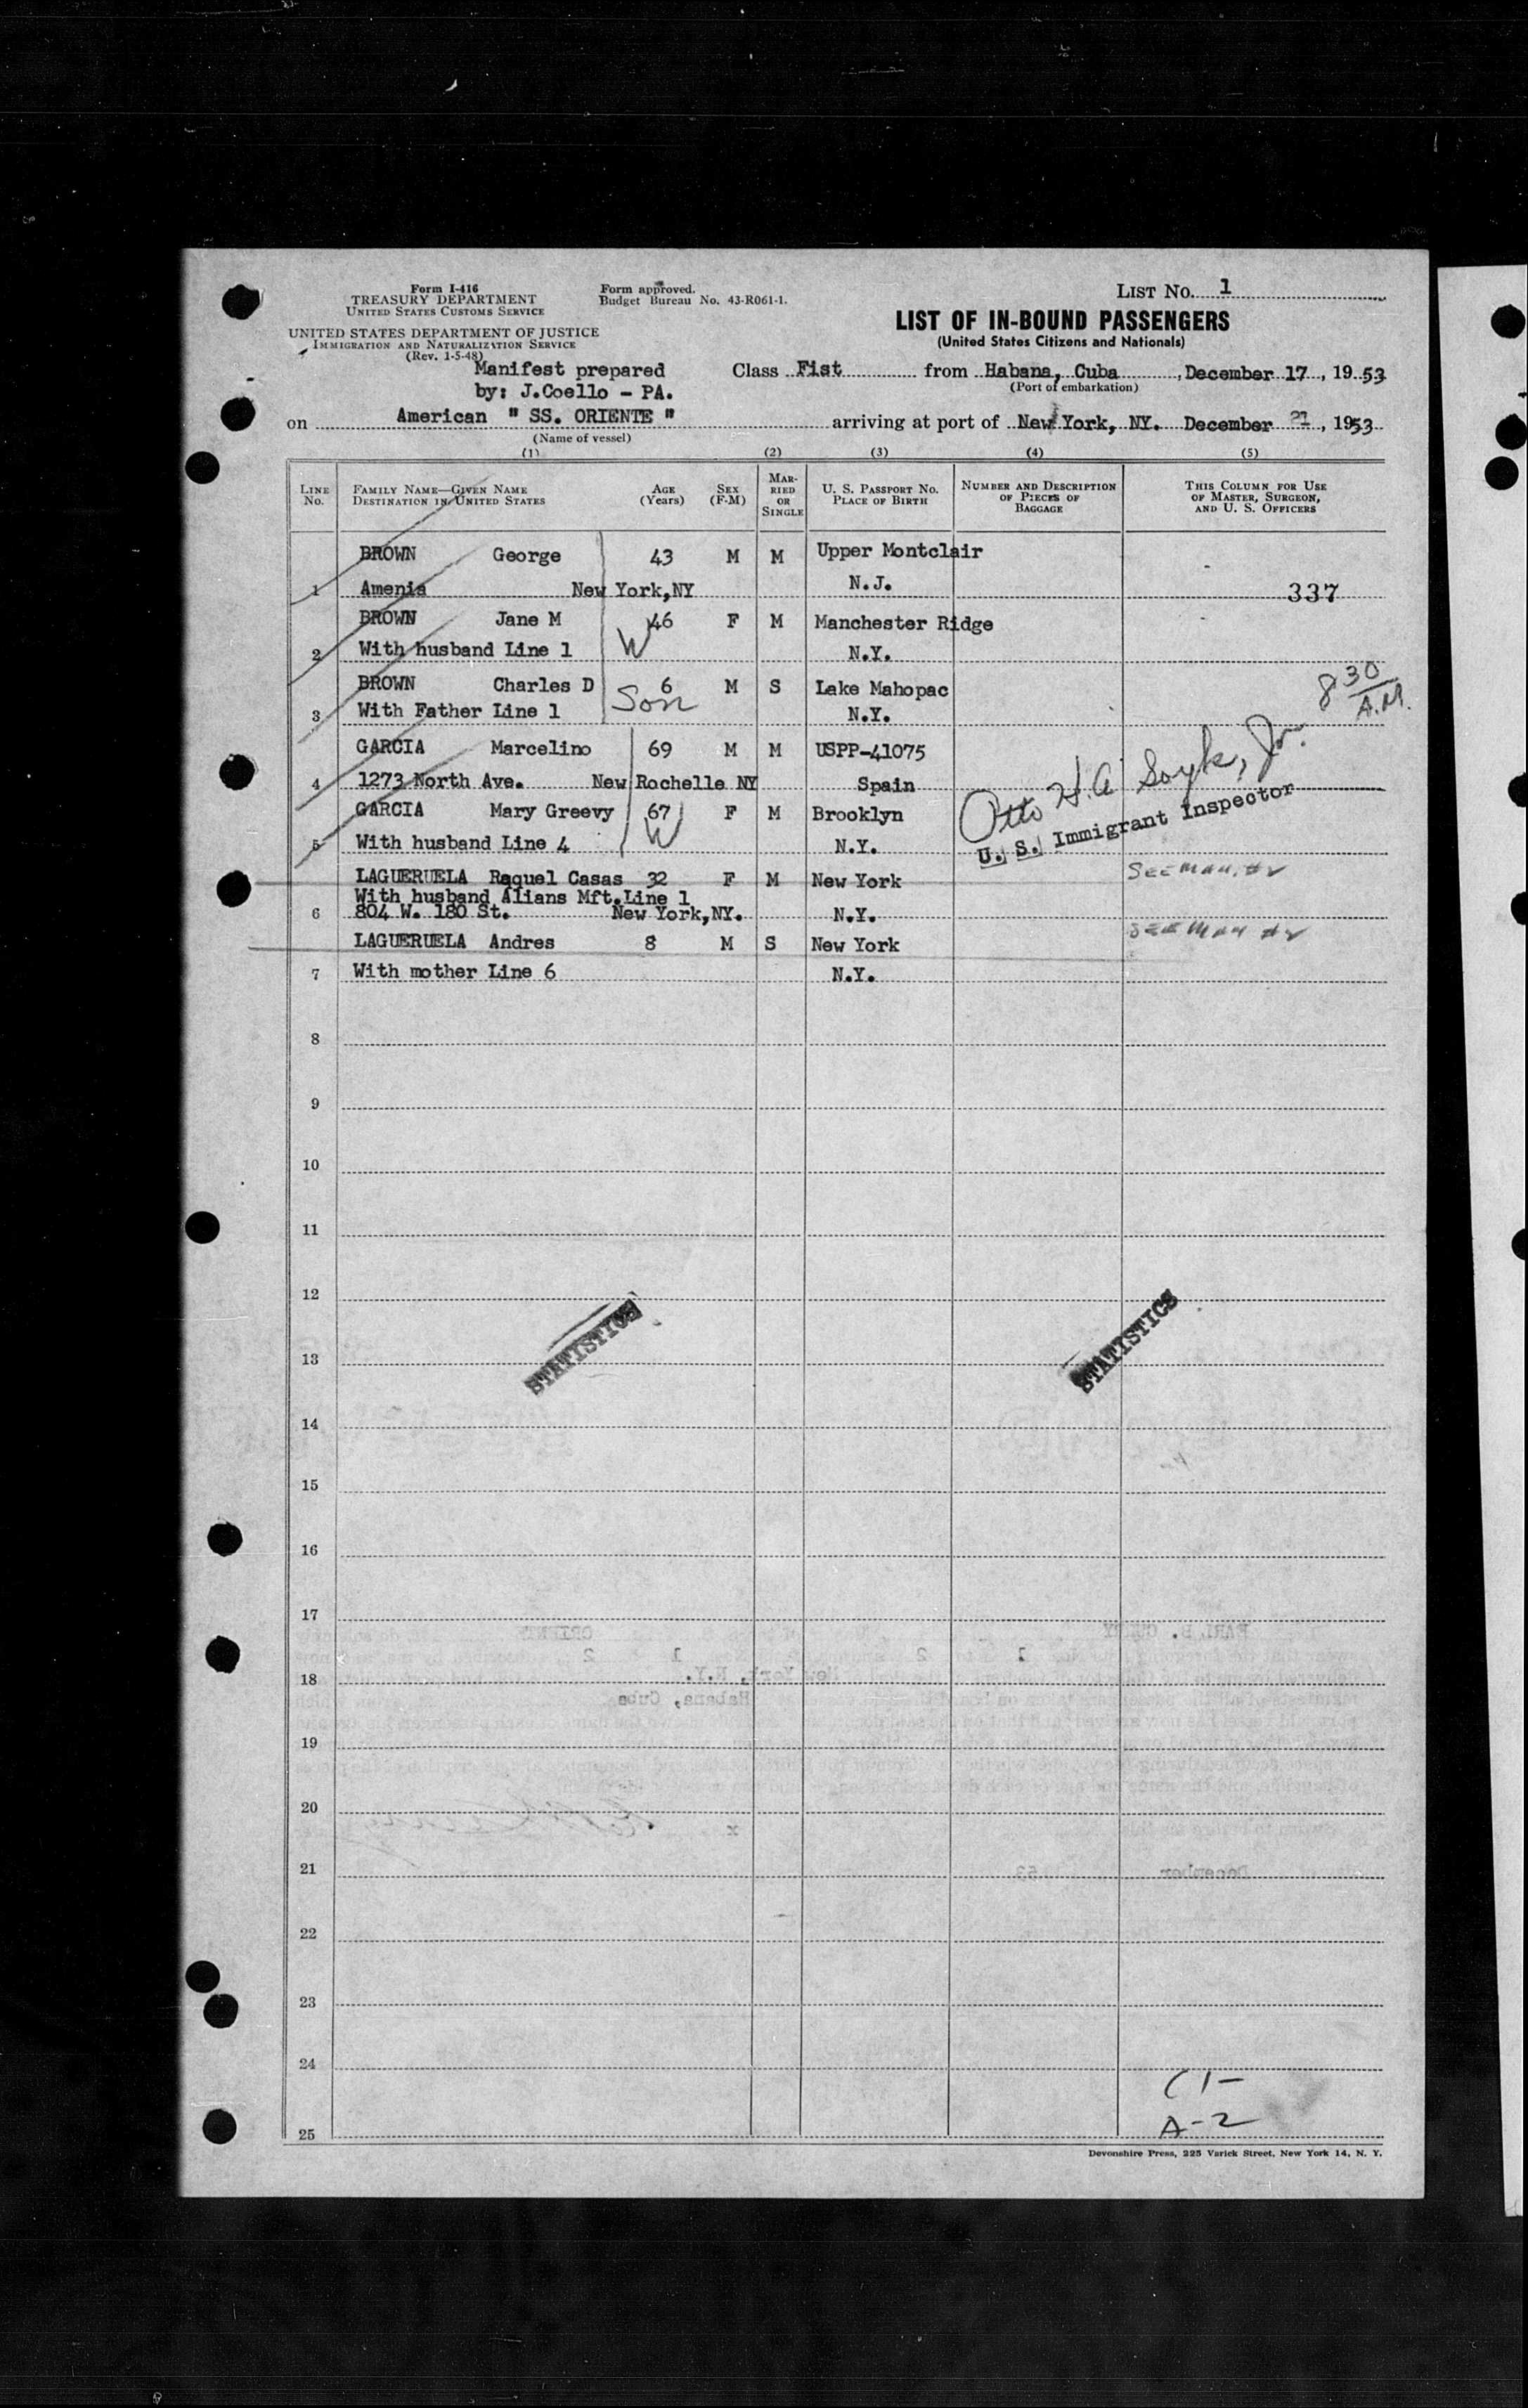 Form I-416
TREASURY DEPARTMENT
UNITED STATES CUSTOMS SERVICE
UNITED STATES DEPARTMENT OF JUSTICE
IMMIGRATION AND NATURALIZATION SERVICE
(Rev. 1-5-48)
Form approved.
Budget Bureau No. 43-R061-1.
LIST NO. 1
LIST OF IN-BOUND PASSENGERS
(United States Citizens and Nationals)
Manifest prepared
by: J.Coello - PA.
Class Fist from Habana, Cuba, December 17, 1953
(Port of embarkation)
on American " SS. ORIENTE " arriving at port of New York, NY. December 21, 1953
(Name of vessel)
(1) (2) (3) (4) (5)
LINE NO.
FAMILY NAME—GIVEN NAME
DESTINATION IN UNITED STATES
AGE (Years)
SEX (F-M)
MARRIED OR SINGLE
U. S. PASSPORT NO.
PLACE OF BIRTH
NUMBER AND DESCRIPTION OF PIECES OF BAGGAGE
THIS COLUMN FOR USE OF MASTER, SURGEON, AND U. S. OFFICERS
BROWN George 43 M M Upper Montclair
1 Amenia New York,NY N.J. 337
BROWN Jane M 46 F M Manchester Ridge
2 With husband Line 1 W N.Y.
BROWN Charles D 6 M S Lake Mahopac
Son 8 30 A.M.
3 With Father Line 1 N.Y.
GARCIA Marcelino 69 M M USPP-41075
4 1273 North Ave. New Rochelle NY Spain
Otto H.A. Jr.
U. S. Immigrant Inspector
GARCIA Mary Greevy 67 F M Brooklyn
5 With husband Line 4 W N.Y.
LAGUERUELA Raquel Casas 32 F M New York SEE MAN. #2
With husband Alians Mft.Line 1
6 804 W. 180 St. New York,NY. N.Y.
LAGUERUELA Andres 8 M S New York SEE MAN #2
7 With mother Line 6 N.Y.
8
9
10
11
12
STATISTICS STATISTICS
13
14
15
16
17
18
19
20
21
22
23
24
A-2
25
Devonshire Press, 225 Varick Street, New York 14, N. Y.